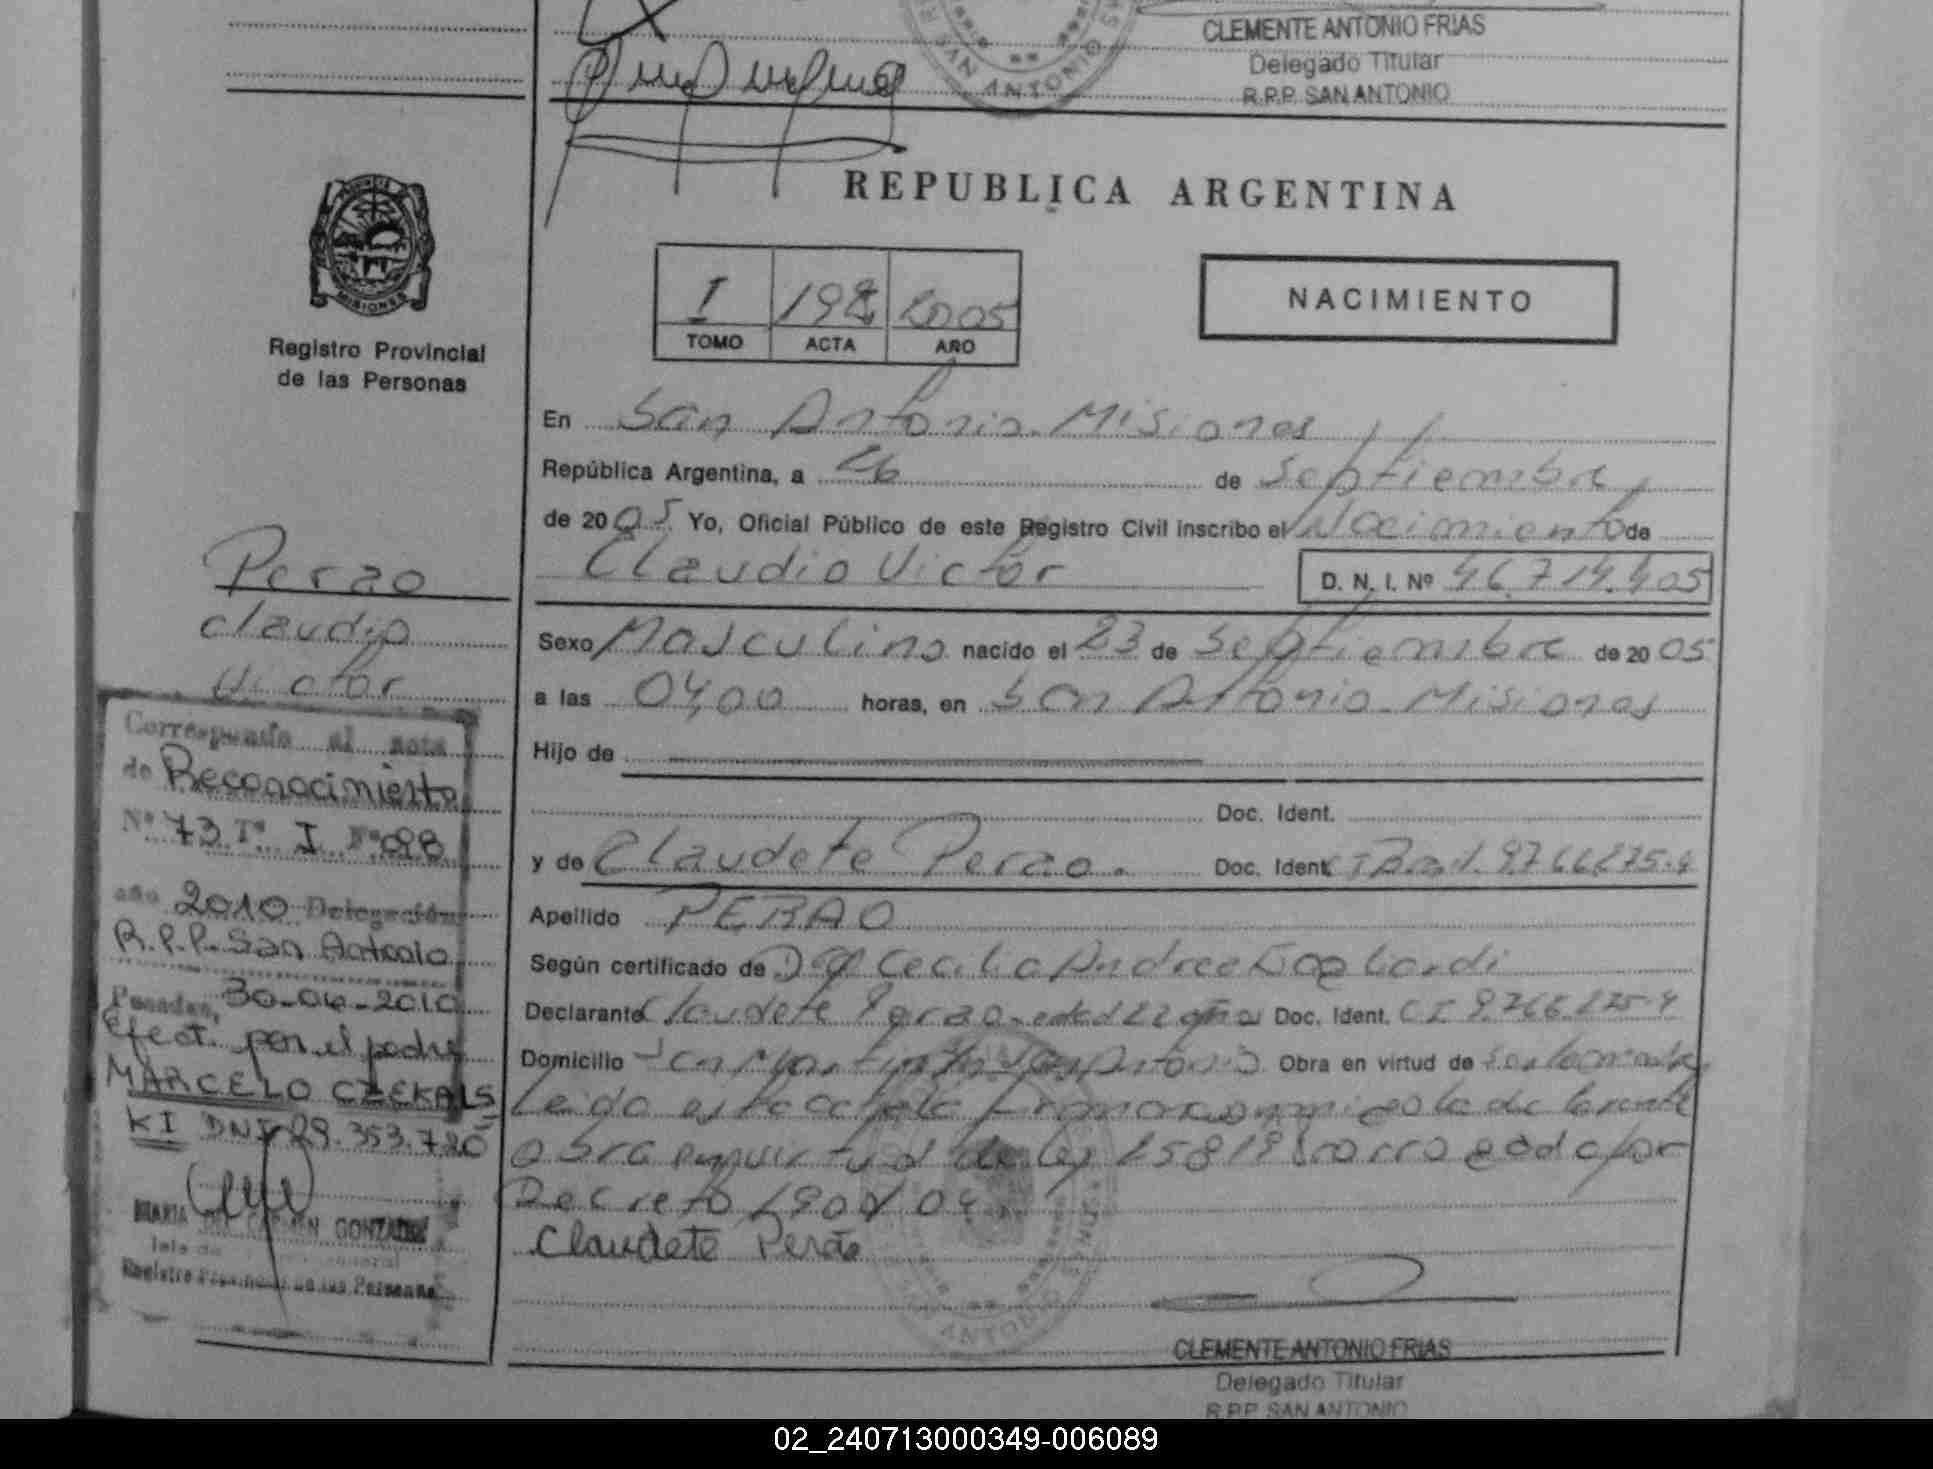 CLEMENTE ANTONIO FRIAS
Delegado Titular
R.P.P. SAN ANTONIO
SAN ANTONIO
REPUBLICA ARGENTINA
MISIONES
Registro Provincial
de las Personas
I 2005
TOMO ACTA AÑO
NACIMIENTO
En San Antonio - Misiones
República Argentina, a 26 de Septiembre
de 2005 Yo, Oficial Público de este Registro Civil inscribo el Nacimiento de
Claudio Victor D. N. I. Nº 46.714.405
Perao
Claudio
Victor
Sexo Masculino nacido el 23 de Septiembre de 2005
a las 04,00 horas, en San Antonio - Misiones
Hijo de
Doc. Ident.
y de Claudete Perao. Doc. Ident. CI Brasil. 9766275-4
Apellido PERAO
Según certificado de Cecilia Andrea
Declarante Claudete Perao - edad 22 años Doc. Ident. CI 9.766.275-4
Domicilio San Antonio Obra en virtud de
Leida esta acta la firma conmigo la declarante
obra en virtud de ley 25819 prorrogada por
Decreto 1900/04
Claudete Perão
Corresponde al acta
de Reconocimiento
Nº 73 Tº I Fº 098
año 2010 Delegación
R.P.P. San Antonio
Posadas, 30-04-2010
Efect. por el padre
MARCELO CZEKALS
KI DNI 29.353.720
MARIA DEL CARMEN GONZALEZ
Registro Provincial de las Personas
SAN ANTONIO
CLEMENTE ANTONIO FRIAS
Delegado Titular
R.P.P. SAN ANTONIO
02_240713000349-006089